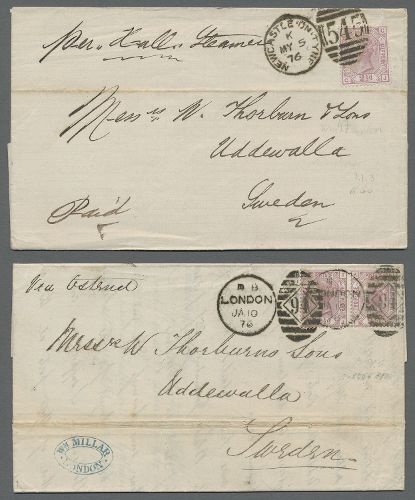 per Hulls Steamer
NEWCASTLE-ON-TYNE
K
MY 5
76
545
Messrs W. Thorburn & Sons
Uddewalla
Sweden
Paid
Via Ostend
B
LONDON
JA 10
76
91
Messrs W Thorburns Sons
Uddewalla
Sweden
WM MILLAR
LONDON